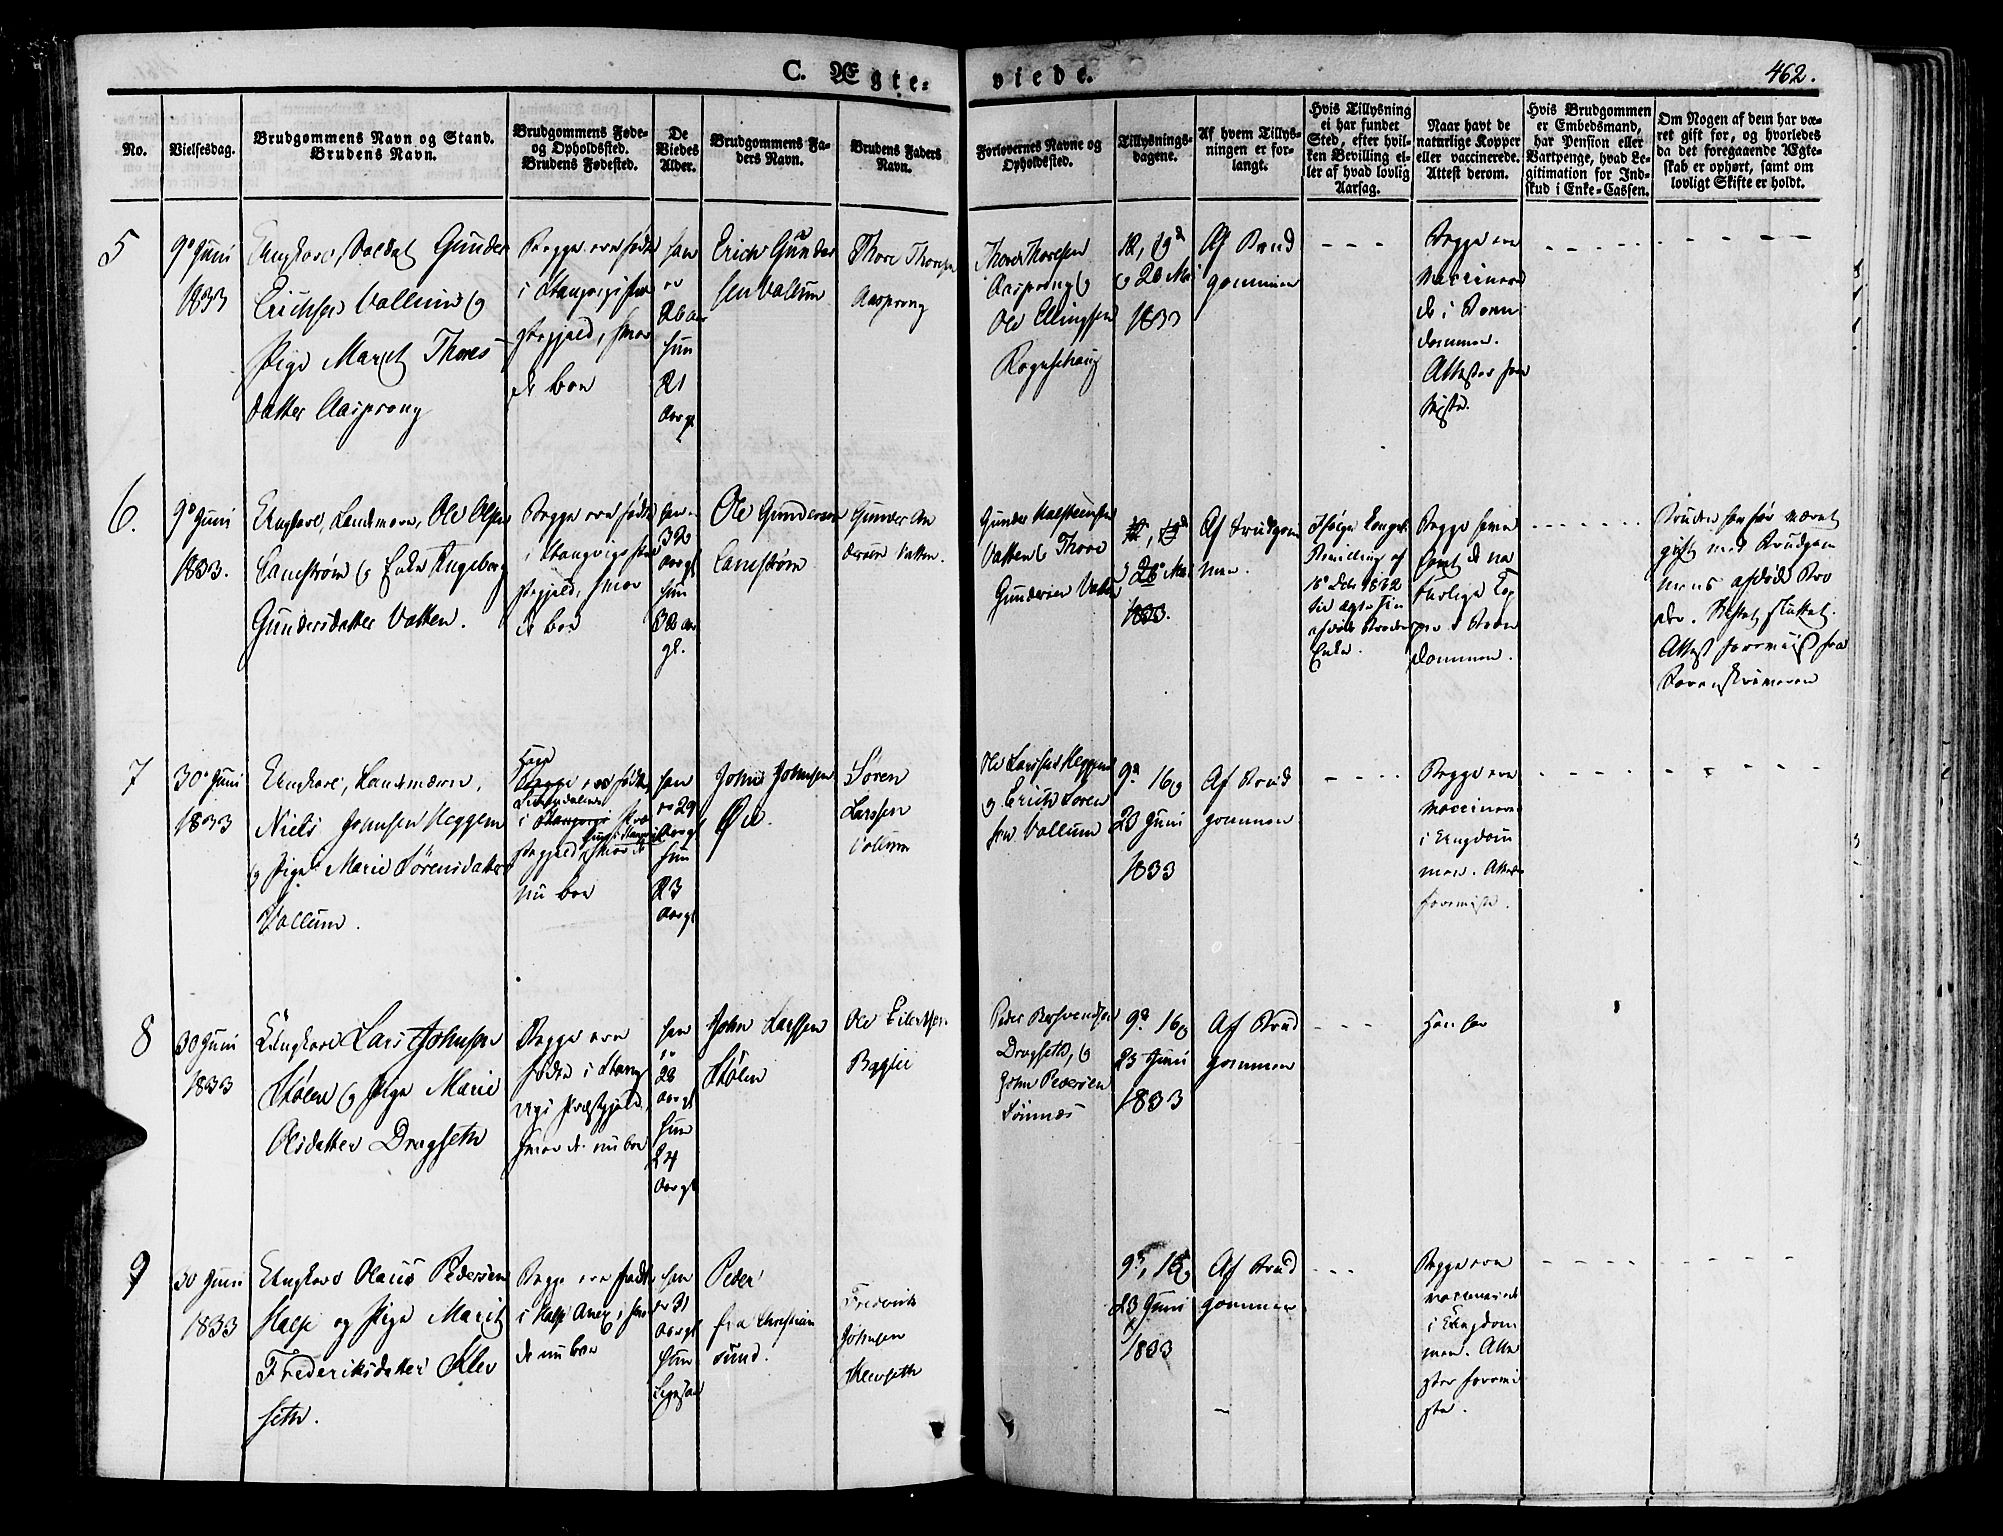 462.
C. Ægte=
viede.
No.
Vielsesdag.
Brudgommens Navn og Stand.
Brudens Navn.
Brudgommens Føde-
og Opholdssted.
Brudens Fødested.
De
Viedes
Alder.
Brudgommens Fa-
ders Navn.
Brudens Faders
Navn.
Forlovernes Navne og
Opholdssted.
Tillysnings-
dagene.
Af hvem Tillys-
ningen er for-
langt.
Hvis Tillysning
ei har fundet
Sted, efter hvil-
ken Bevilling el-
ler af hvad lovlig
Aarsag.
Naar havt de
naturlige Kopper
eller vaccinerede.
Attest derom.
Hvis Brudgommen
er Embedsmand,
har Pension eller
Vartpenge, hvad Le-
gitimation for Ind-
skud i Enke-Cassen.
Om Nogen af dem har væ-
ret gift før, og hvorledes
da det foregaaende Ægte-
skab er ophørt, samt om
lovligt Skifte er holdt.
5
9de Juni
1833
Ungkarl, Soldat Gunder
Erichsen Vollum og
Pige Marit Thores-
datter Aasprong
Begge ere fødte
i Stangvigs Præ
stegjeld, hvor
de boe
han
er
26 aar
hun
21
Aargl
Erich Gunder
sen Vollum
Thore Thoresen
Aasprong
Thore Thoresen
Aasprong og
Ole Ellingsen
Rognschoug
12, 19de
og 26 Mai
1833
Af Brud
gommen
Begge ere
vaccinere
de i Barn
dommen.
Attester fore
viste.
6.
9de Juni
1833.
Ungkarl, Landværn, Ole Olsen
Camstrøm og Enke Ingeborg
Gundersdatter Vatten.
Begge ere fødte
i Stangvigs Præ
stegjeld, hvor
de boe
han
32
aargl
hun
32 aar
gl.
Ole Gundersen
Camstrøm
Gunder An
dersen Vatten.
Gunder Halsteinsen
Vatten og Thore
Gundersen Vatten
12, 19de
og 26de Mai
1833.
Af Brudgom
men.
Ifølge Kongel.
Bevilling af
18de Octr 1832
til ægte sin
afdøde Broders
Enke.
Begge have
havt de na
turlige Cop
per i Barn
dommen.
Bruden har før været
gift med Brudgom
mens afdøde Bro
der. Skiftet sluttet.
Attest forevist fra
Sorenskriveren
7
30de Juni
1833
Ungkarl, Landværn,
Niels Johnsen Heggem
og Pige Marie Sørensdatter
Vollum.
Begge ere fødte
i Stangvigs Præ
stegjeld, hvor de
nu boe
han
er 29
Aargl
hun
23
Aargl
John Johnsen
Øie.
Søren
Larssen
Vollum
Ole Larssen Heggem
og Erich Søren
sen Vollum
9de 16 og
23 Juni
1833
Af Brud
gommen
Begge ere
vaccinerede
i Ungdom
men. Attester
foreviste.
8
30 Juni
1833
Ungkarl Lars Johnsen
Stølen og Pige Marie
Olsdatter Drogseth
Begge ere
fødte i Stang
vigs Præstegjeld,
hvor de nu boe
han
er
28
aargl
hun
24
Aargl
John Larssen
Stølen
Ole Eilertsen
Peder
Drogseth, og
John Pedersen
9de 16 og
23 Juni
1833
Af Brud
gommen
9
30 Juni
1833
Ungkarl Olaus Pedersen
Halse og Pige Marit
Frederiksdatter Klev
seth.
Begge ere født
i Halse Anex, hvor
de nu boe
han
er 31
Aargl
hun
Ligesaa
Peder
fra Christian
sund.
Frederik
Johnsen
Klevseth
9de, 16 og
23 Juni
1833
Af Brud
gommen
Begge ere
vaccinerede
i Ungdom
men. Atte
ster forevi
ste.